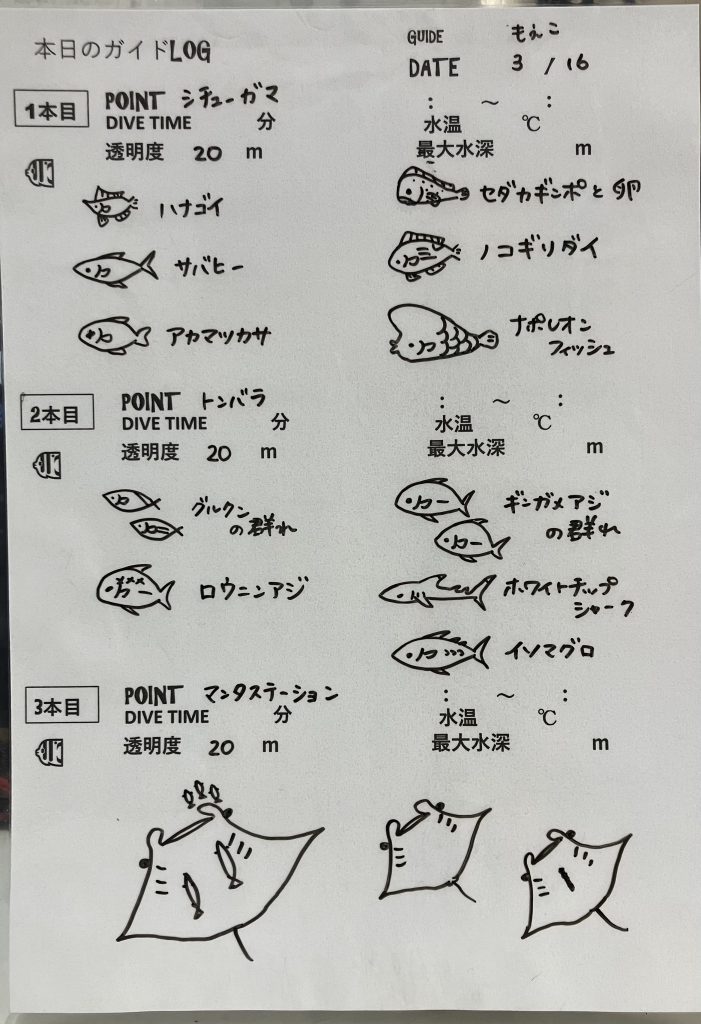 本日のガイドLOG
GUIDE もえこ
DATE 3 / 16
1本目 POINT シチューガマ : ~ :
DIVE TIME 分 水温 ℃
透明度 20 m 最大水深 m
ハナゴイ
セダカギンポと卵
サバヒー
ノコギリダイ
アカマツカサ
ナポレオン
フィッシュ
2本目 POINT トンバラ : ~ :
DIVE TIME 分 水温 ℃
透明度 20 m 最大水深 m
グルクン
の群れ
ギンガメアジ
の群れ
ロウニンアジ
ホワイトチップ
シャーク
イソマグロ
3本目 POINT マンタステーション : ~ :
DIVE TIME 分 水温 ℃
透明度 20 m 最大水深 m